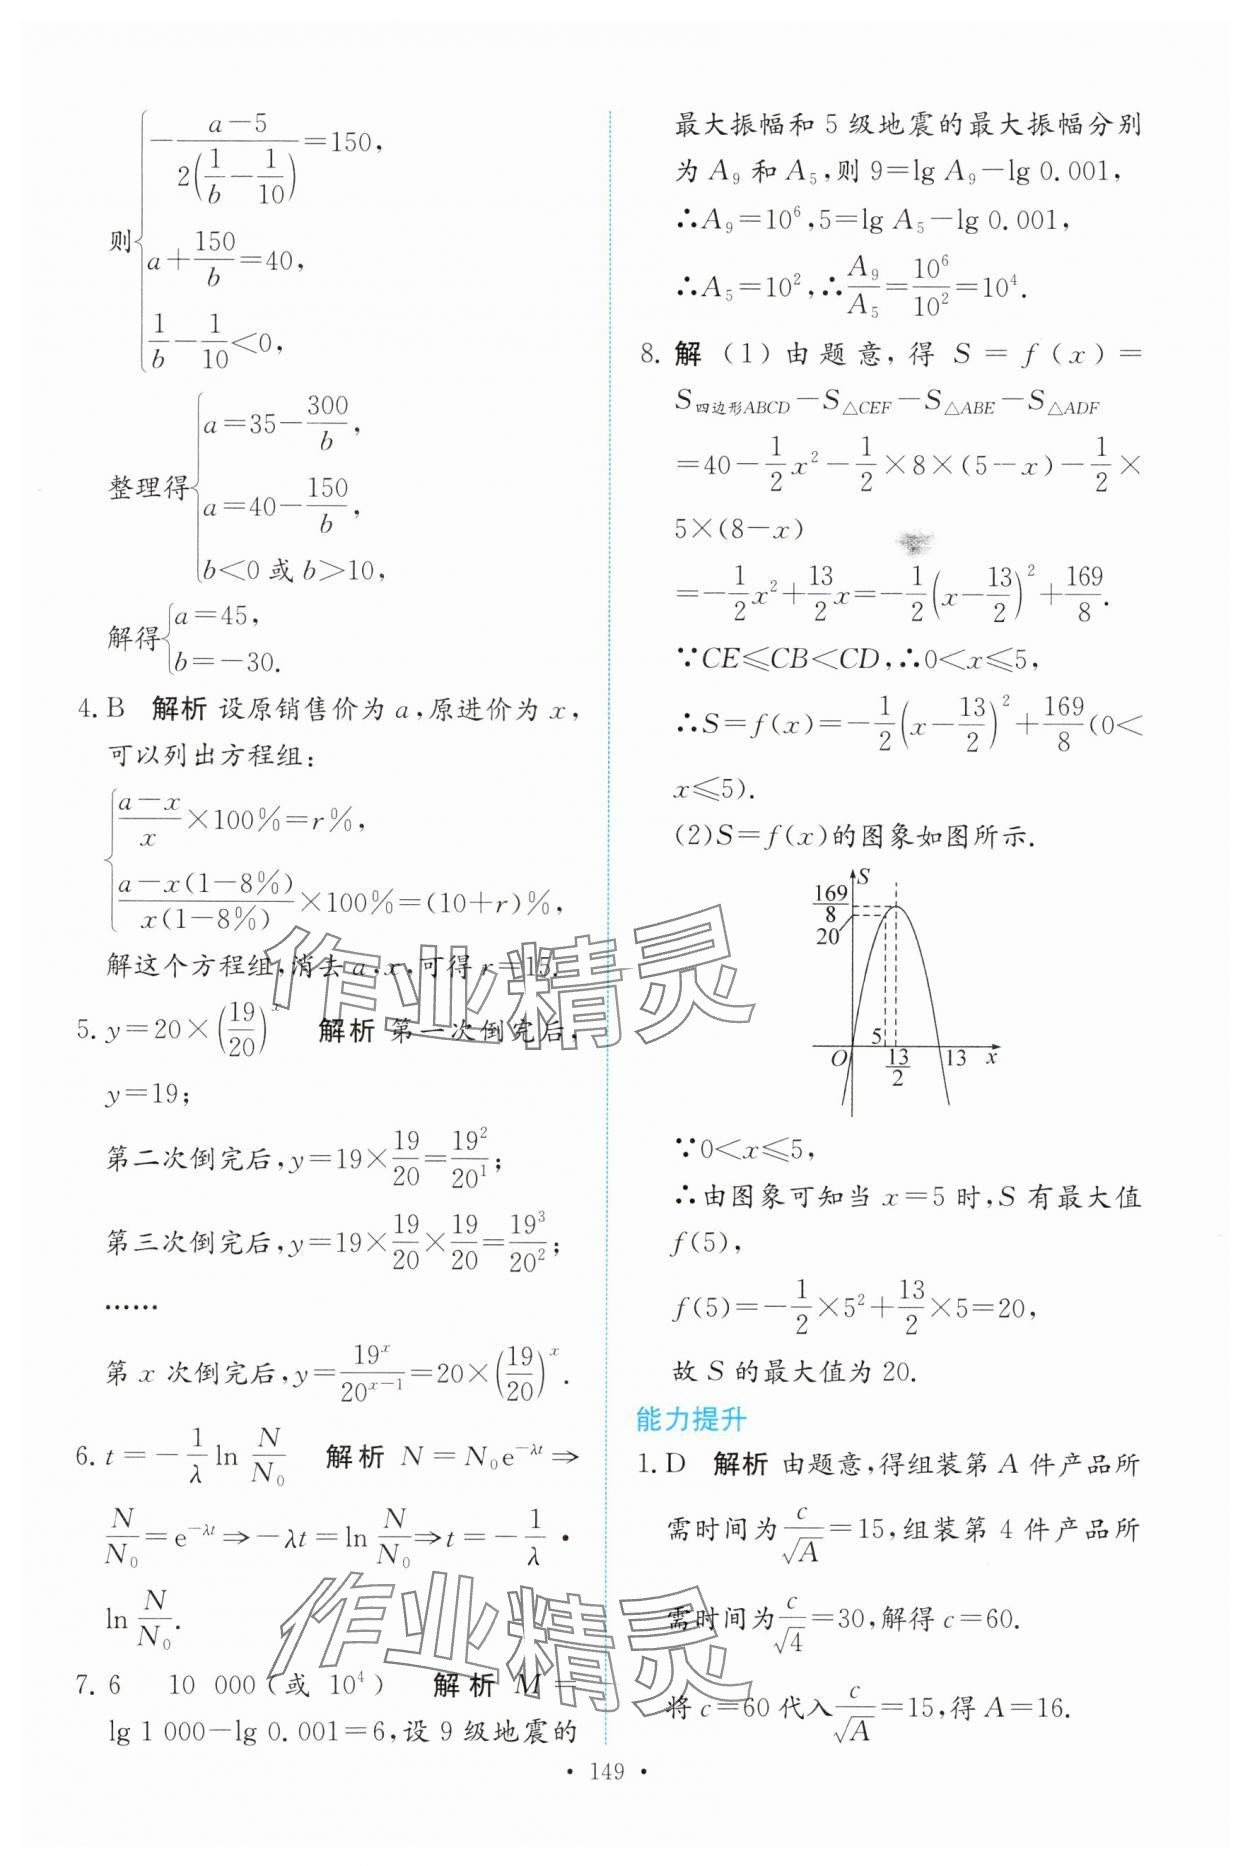 则{-(a-5)/(2(1/b-1/10))=150,
a+150/b=40,
1/b-1/10<0,
整理得{a=35-300/b,
a=40-150/b,
b<0或b>10,
解得{a=45,
b=-30.
4. B 解析 设原销售价为a,原进价为x,
可以列出方程组:
{(a-x)/x×100%=r%,
(a-x(1-8%))/(x(1-8%))×100%=(10+r)%,
解这个方程组,消去a,x,可得r=15.
5. y=20×(19/20)^x 解析 第一次倒完后,
y=19;
第二次倒完后,y=19×19/20=19²/20¹;
第三次倒完后,y=19×19/20×19/20=19³/20²;
……
第x次倒完后,y=19^x/20^(x-1)=20×(19/20)^x.
6. t=-1/λ ln N/N₀ 解析 N=N₀e^(-λt)⇒
N/N₀=e^(-λt)⇒-λt=ln N/N₀⇒t=-1/λ·
ln N/N₀.
7. 6 10 000(或 10⁴) 解析 M=
lg 1 000-lg 0.001=6,设9级地震的
最大振幅和5级地震的最大振幅分别
为A₉和A₅,则9=lg A₉-lg 0.001,
∴A₉=10⁶,5=lg A₅-lg 0.001,
∴A₅=10²,∴A₉/A₅=10⁶/10²=10⁴.
8. 解 (1)由题意,得S=f(x)=
S四边形ABCD-S△CEF-S△ABE-S△ADF
=40-1/2x²-1/2×8×(5-x)-1/2×
5×(8-x)
=-1/2x²+13/2x=-1/2(x-13/2)²+169/8.
∵CE≤CB<CD,∴0<x≤5,
∴S=f(x)=-1/2(x-13/2)²+169/8(0<
x≤5).
(2)S=f(x)的图象如图所示.
S
169/8
20
5
O 13/2 13 x
∵0<x≤5,
∴由图象可知当x=5时,S有最大值
f(5),
f(5)=-1/2×5²+13/2×5=20,
故S的最大值为20.
能力提升
1. D 解析 由题意,得组装第A件产品所
需时间为c/√A=15,组装第4件产品所
需时间为c/√4=30,解得c=60.
将c=60代入c/√A=15,得A=16.
作业精灵
作业精灵
• 149 •